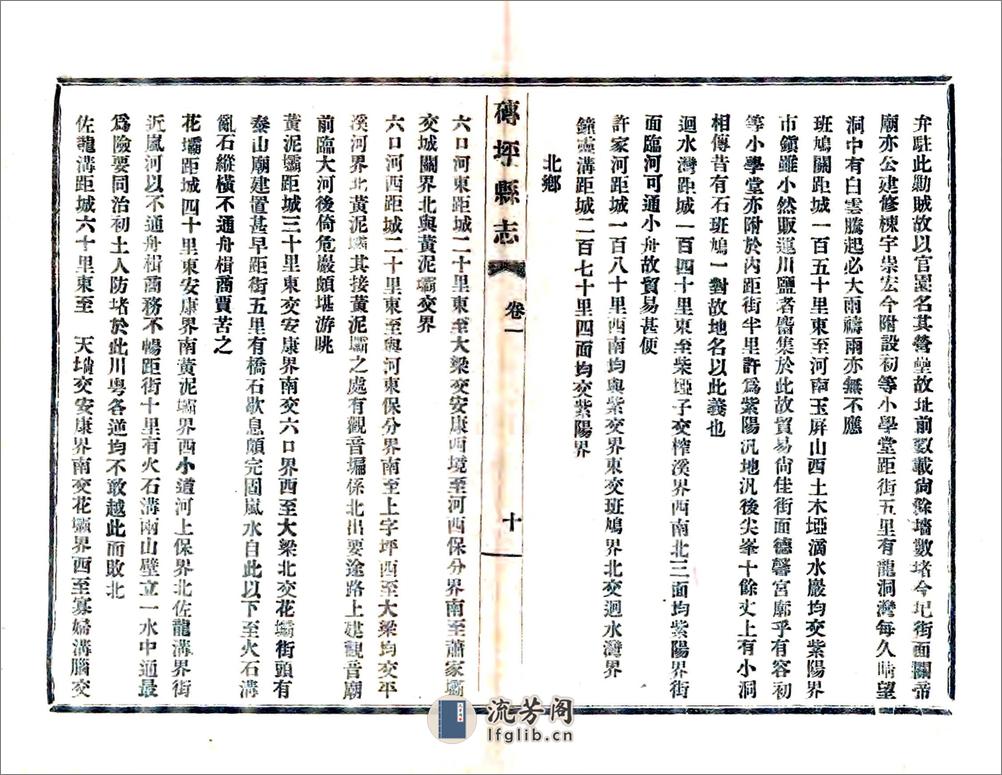 弁駐此勦賊故以官園名其營壘故址前數載尙餘墻數堵今圮街面關帝
廟亦公建修棟宇崇宏今附設初等小學堂距街五里有龍洞灣每久晴望
洞中有白雲騰起必大雨禱雨亦無不應
班鳩關距城一百五十里東至河南玉屏山西土木埡滴水巖均交紫陽界
市鎮雖小然販運川鹽者麕集於此故貿易尙佳街面德馨宮廓乎有容初
等小學堂亦附於內距街半里許爲紫陽汎地汎後尖峯十餘丈上有小洞
相傳昔有石班鳩一對故地名以此義也
迴水灣距城一百四十里東至柴埡子交榨溪界西南北三面均紫陽界街
面臨河可通小舟故貿易甚便
許家河距城一百八十里西南均與紫陽交界東交班鳩界北交迴水灣界
鐘靈溝距城二百七十里四面均交紫陽界
北鄉
磚坪縣志
卷一
十
六口河東距城二十里東至大梁交安康西境至河西保分界南至蕭家壩
交城關界北與黃泥壩交界
六口河西距城二十里東至與河東保分界南至上字坪西至大梁均交平
溪河界北黃泥壩其接黃泥壩之處有觀音堖係北出要途路上建觀音廟
前臨大河後倚危巖頗堪游眺
黃泥壩距城三十里東交安康界南交六口界西至大梁北交花壩街頭有
泰山廟建置甚早距街五里有橋石歇息頗完固嵐水自此以下至火石溝
亂石縱橫不通舟楫商賈苦之
花壩距城四十里東安康界南黃泥壩界西小道河上保界北佐龍溝界街
近嵐河以不通舟楫商務不暢距街十里有火石溝兩山壁立一水中通最
爲險要同治初土人防堵於此川粵各逆均不敢越此而敗北
佐龍溝距城六十里東至 天墻交安康界南交花壩界西至寡婦溝腦交
流芳阁
lfglib.cn